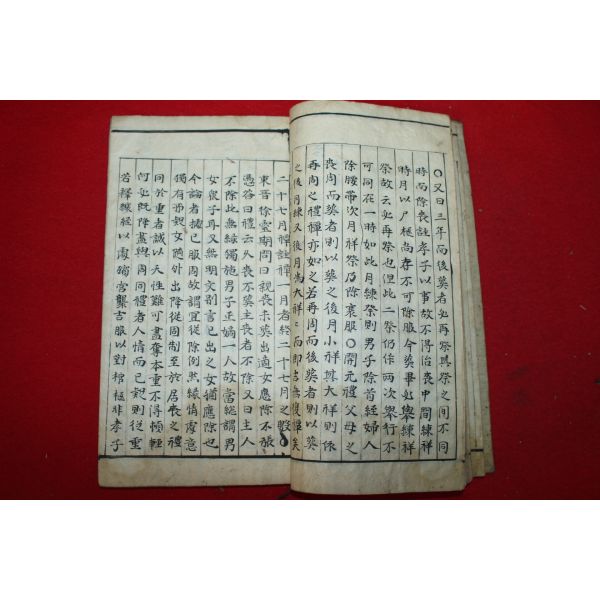 ○又曰三年而後葬者必再祭其祭之間不同
時而除喪註孝子以事故不得治喪中間練祥
時月以尸柩尚存不可除服今葬畢必擧練祥
祭故云必再祭也但此二祭仍作兩次擧行不
可同在一時如此月練祭則男子除首絰婦人
除腰帶次月祥祭乃除衰服○開元禮父母之
喪周而葬者則以葬之後月小祥其大祥則依
再周之禮禫亦如之若再周而後葬者則以葬
之後月練又後月爲大祥祥而即吉無復禫矣
二十七月禫註禫一月者終二十七月之數
東晉徐靈期問曰親喪未葬出適女應除不張
憑答曰禮云久喪不葬主喪者不除又曰主人
不除此無緣獨施男子正嫡一人故當總謂男
女衆子耳又無明文別言已出之女猶應除也
今論者據已服周故謂宜從除例然緣情處意
獨有
女隨外出降從周制至於居喪之禮
同於重者誠以天性難可盡奪本重不得頓輕
何必旣降盡與周同禮者人情而已親則從重
若釋縗絰以處殯宮襲吉服以對棺柩非孝子